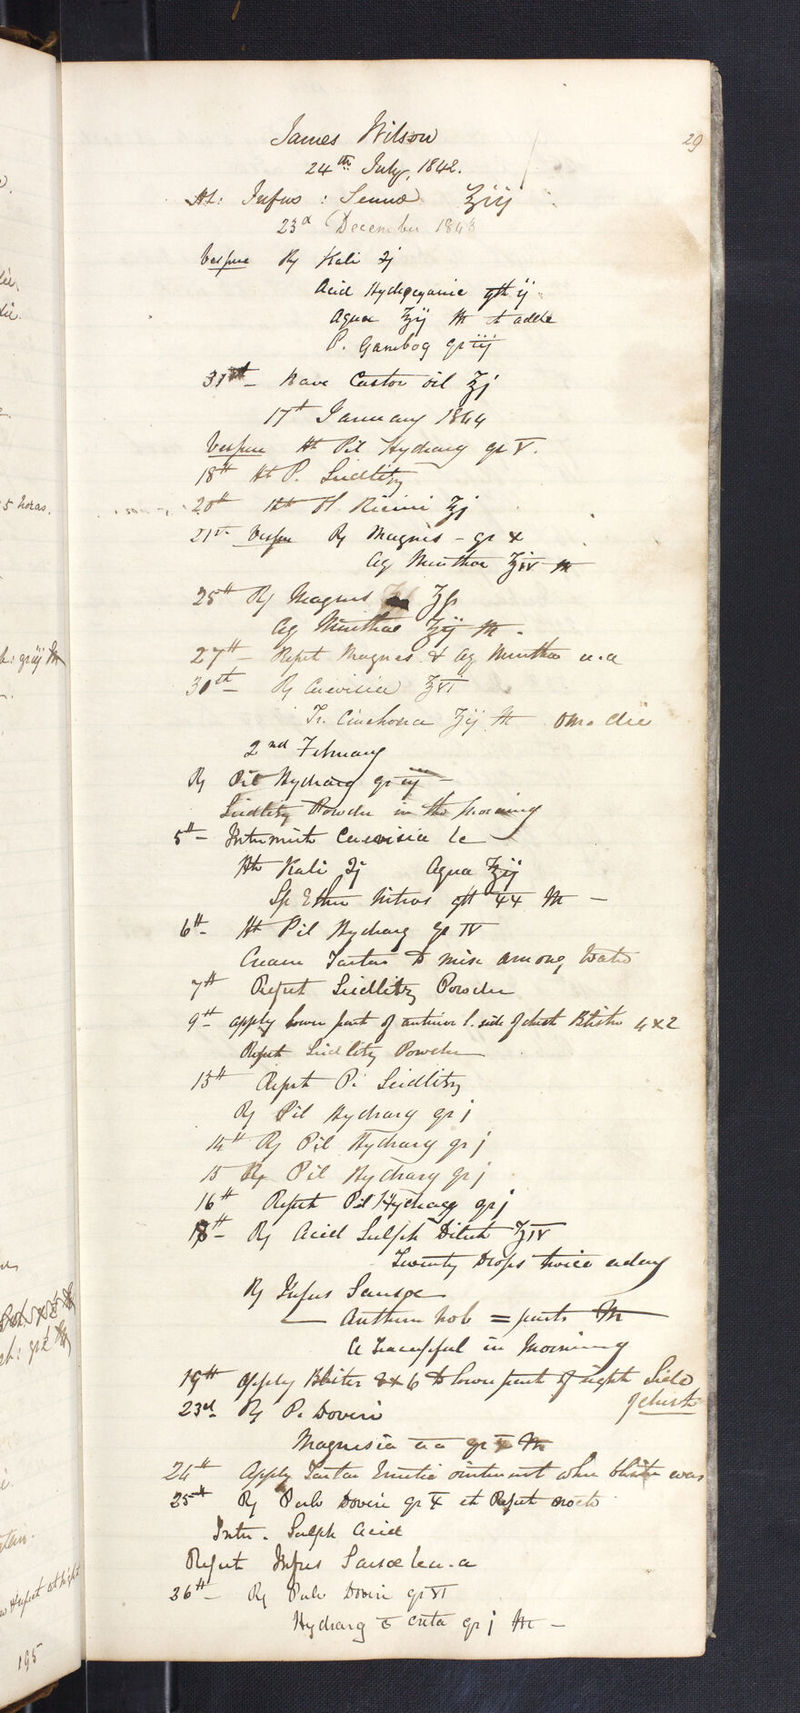 29
James Wilson
24th July, 1842.
Ht: Infus: Sennæ ℥iij
23d December 1843
Vespere Rx Kali ʒj
Acid Hydrocyanic gtt ij
Aqua ℥ij M et adde
P. Gambog gr iij
31st - have Castor oil ℥j
17t January 1844
Vespere Ht Pil Hydrarg gr V.
18th Ht P. Seidlitz
20th Ht Ol Ricini ℥j
21st Vespere Rx Magnes - gr x
Aq Menthae ℥iv M
25th Rx Magnes ʒß
Aq Menthae ℥ij M -
27th - Repet Magnes & Aq Menthae u.a
30th - Rx Cerevisiæ ℥VI
Tr. Cinchona ʒij M omo die
2nd February
Rx Pil Hydrarg gr iij
Seidlitz Powder in the morning
5th - Intermit Cerevisia &c
Ht Kali ʒj Aqua ℥ij
Sp Ether Nitros gtt XX M -
6th - Ht Pil Hydrarg gr IV
Cream Tartar to mix among Water
7th Repet Seidlitz Powder
9th apply lower part of anterior l. side of chest Blister 4 x 2
Repet Seidlitz Powder
13th Repet P. Seidlitz
Rx Pil Hydrarg gr j
14th Rx Pil Hydrarg gr j
15 Rx Pil Hydrarg gr j
16th Repet Pil Hydrarg gr j
18th - Rx Acid Sulph Dilut ʒIV
Twenty Drops twice a day
Rx Infus Sarsæ
Anthem nob = parts M
A teacupful in Morning
19th apply Blister 8 x 6 to lower part of right Side
of chest
23rd - Rx P. Doveri
Magnesia aa gr M
24th Apply Tartar Emetic ointment where blister was
25th Rx Pulv Doveri gr X et Repet nocte
Intr. Sulph Acid
Repet Infus Sarsæ &c u.a
26th - Rx Pulv Doveri gr VI
Hydrarg c creta gr j M -
5 horas.
gr iij M
195